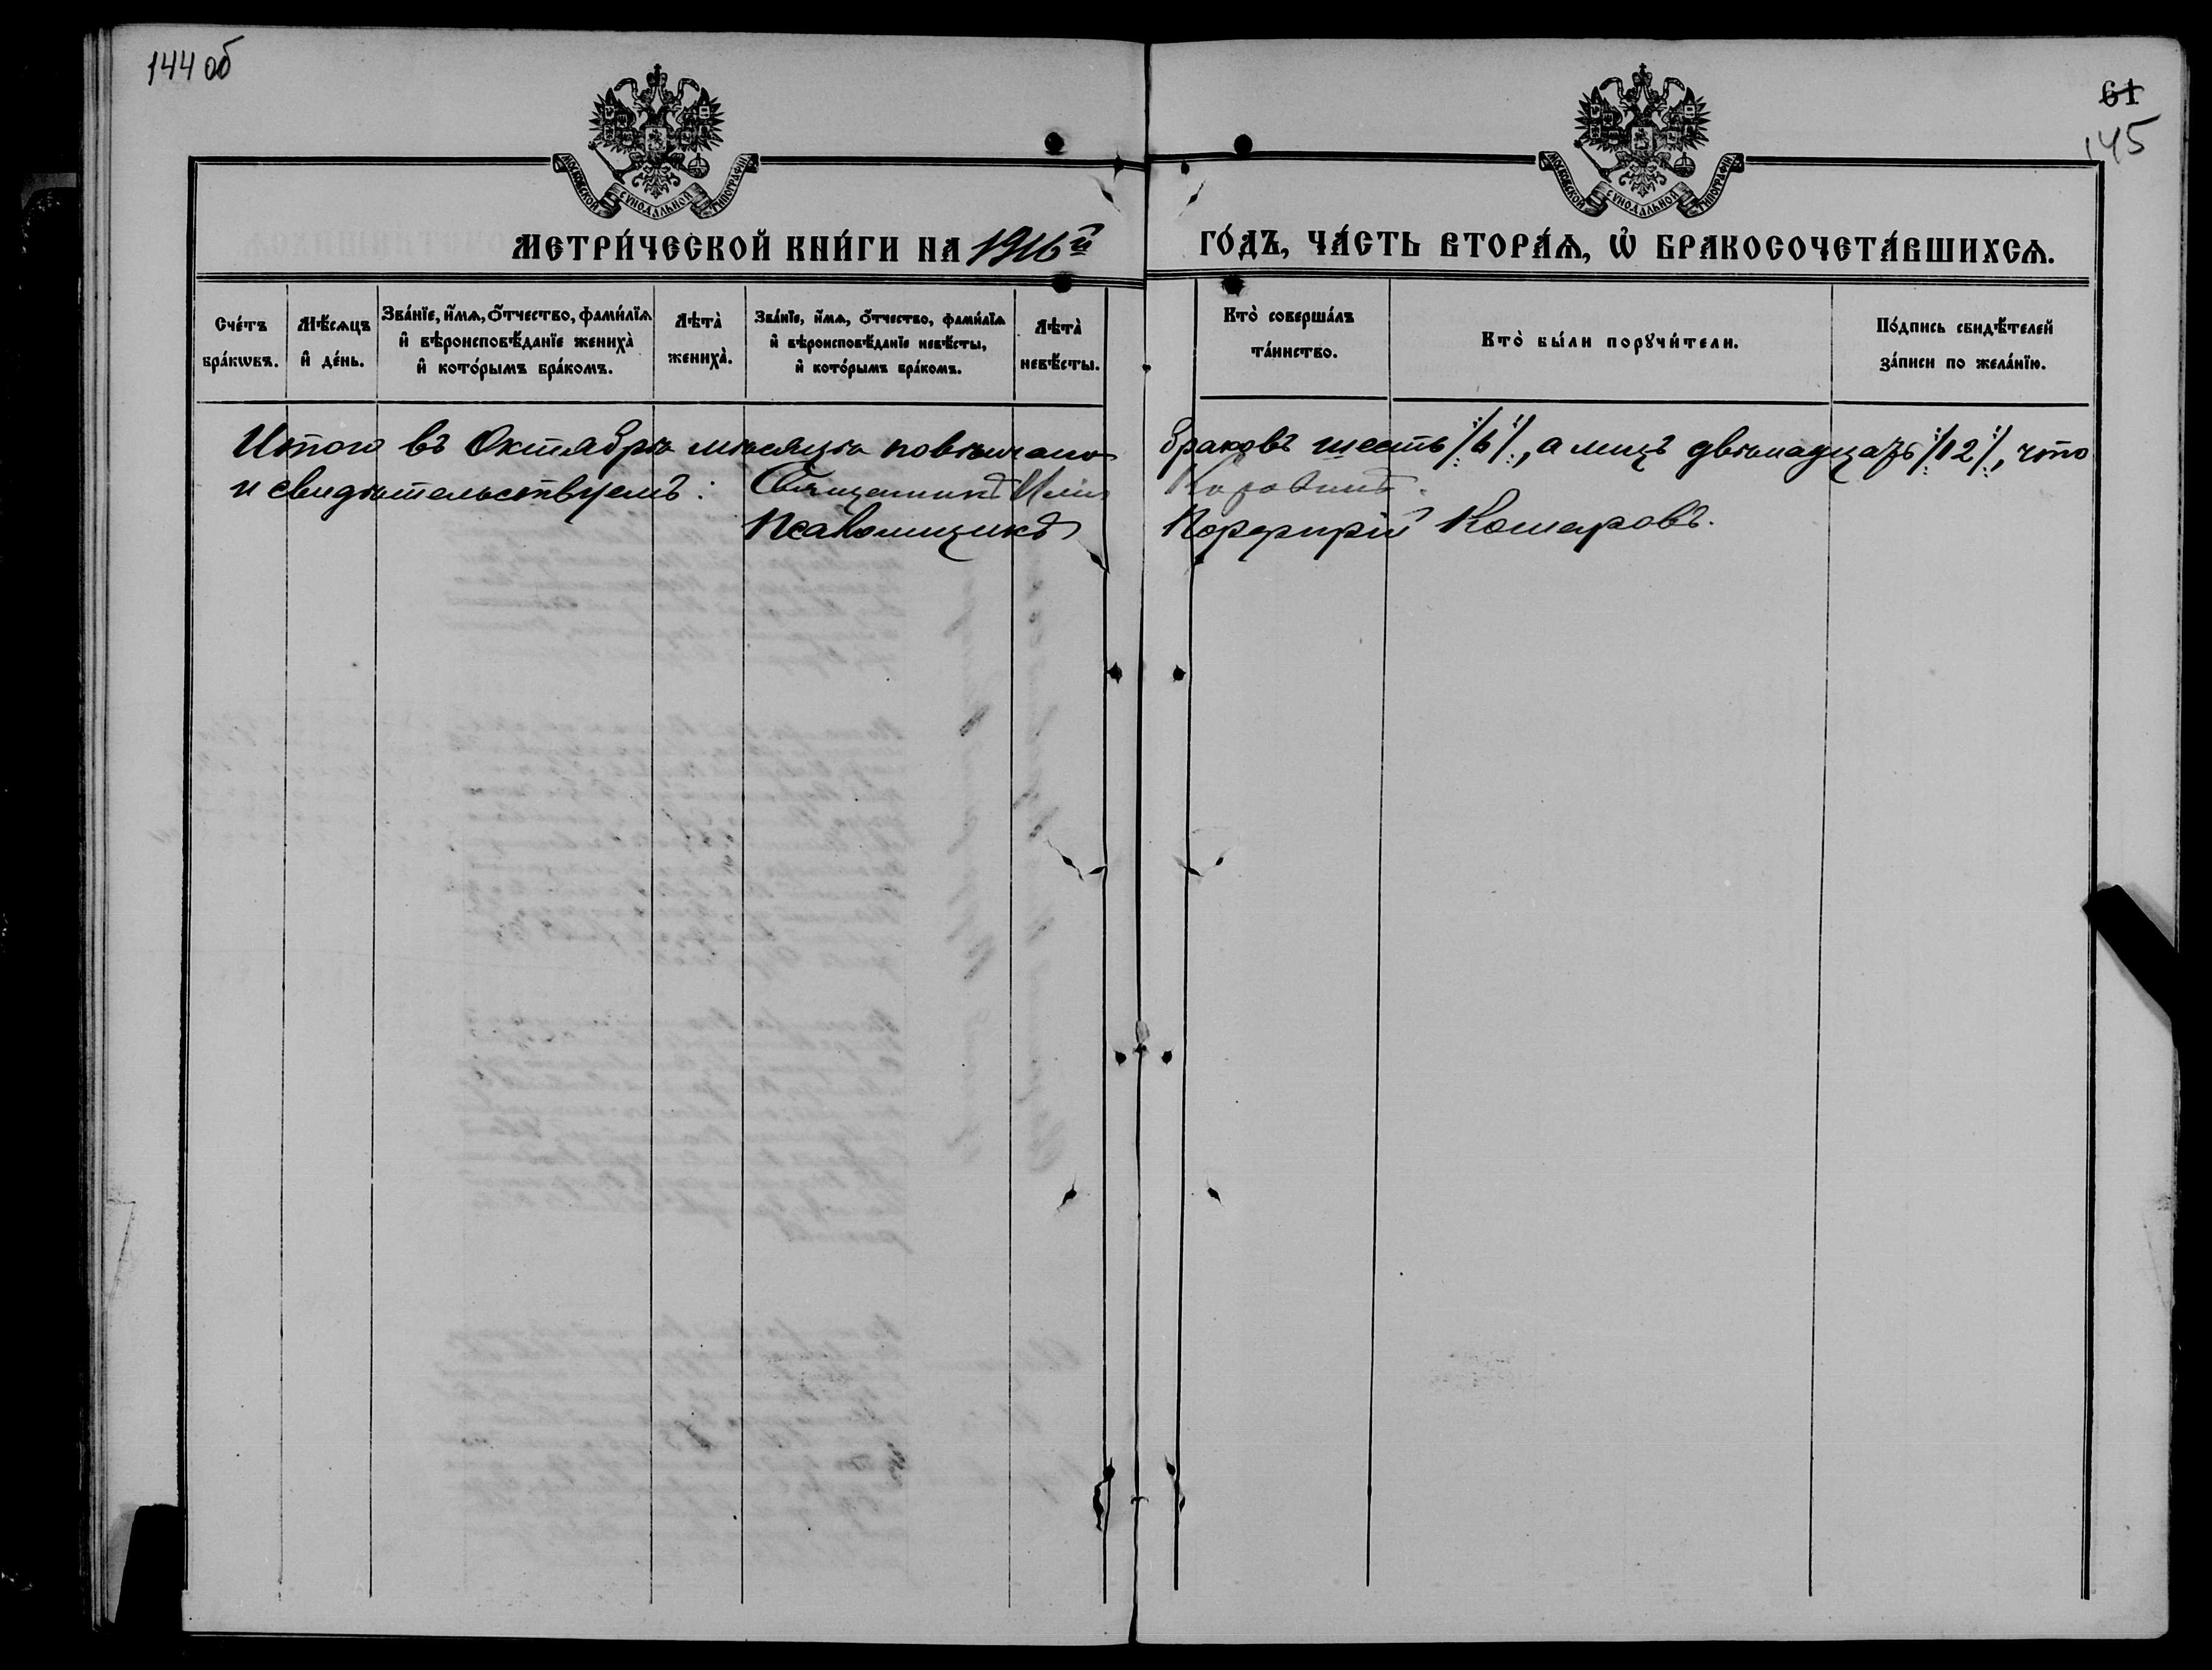 144 об
61
145
МОСКОВСКОЙ СѴНОДАЛЬНОЙ ТИПОГРАФІИ
МОСКОВСКОЙ СѴНОДАЛЬНОЙ ТИПОГРАФІИ
МЕТРИ́ЧЕСКОЙ КНИ́ГИ НА 1916й ГО́ДЪ, ЧА́СТЬ ВТОРА́Ѧ, Ѡ҆ БРАКОСОЧЕТА́ВШИХСѦ.
Сче́тъ
бра́кѡвъ.
Мѣ́сѧцъ
и҆ де́нь.
Зва́нїе, и҆́мѧ, ѻ҆́тчество, фами́лїѧ
и҆ вѣроисповѣ́данїе жениха̀
и҆ кото́рымъ бра́комъ.
Лѣта̀
жениха̀.
Зва́нїе, и҆́мѧ, ѻ҆́тчество, фами́лїѧ
и҆ вѣроисповѣ́данїе невѣ́сты,
и҆ кото́рымъ бра́комъ.
Лѣта̀
невѣ́сты.
Кто̀ соверша́лъ
та́инство.
Кто̀ бы́ли порꙋчи́тели.
По́дпись свидѣ́телей
за́писи по жела́нїю.
Итого въ Октябрѣ мѣсяцѣ повѣнчано браковъ шесть /6/, а лицъ двѣнадцать /12/, что
и свидѣтельствуемъ: Священникъ Илія
Псаломщикъ Порфирій Комаровъ.